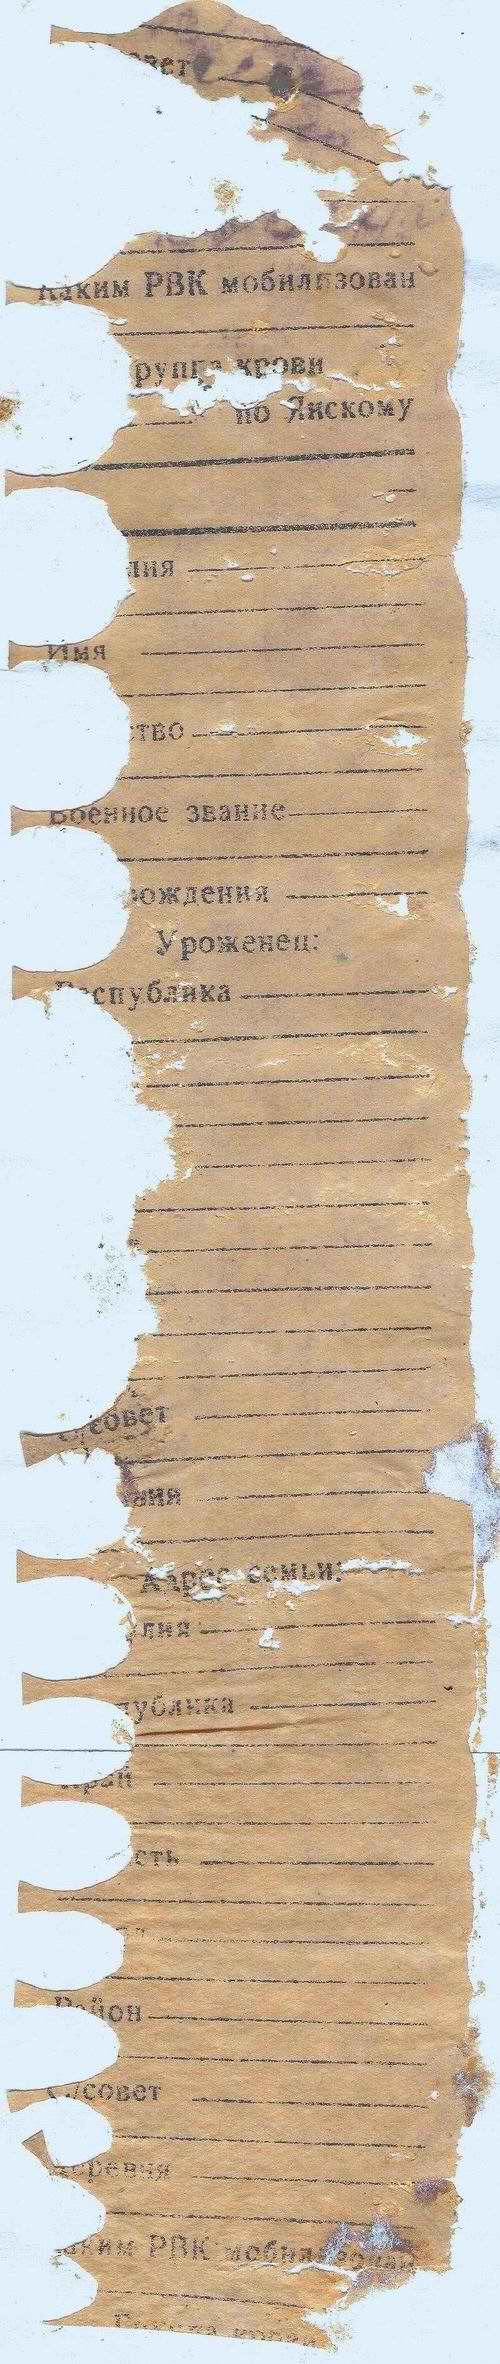 овет
Каким РВК мобилизован
руппа крови
по Янскому
лия
Имя
ство
Военное звание
рождения
Уроженец:
Республика
с/совет
вня
Адрес семьи:
илия
публика
Край
сть
Район
С/совет
Деревня
Каким РВК мобилизован
Группа крови